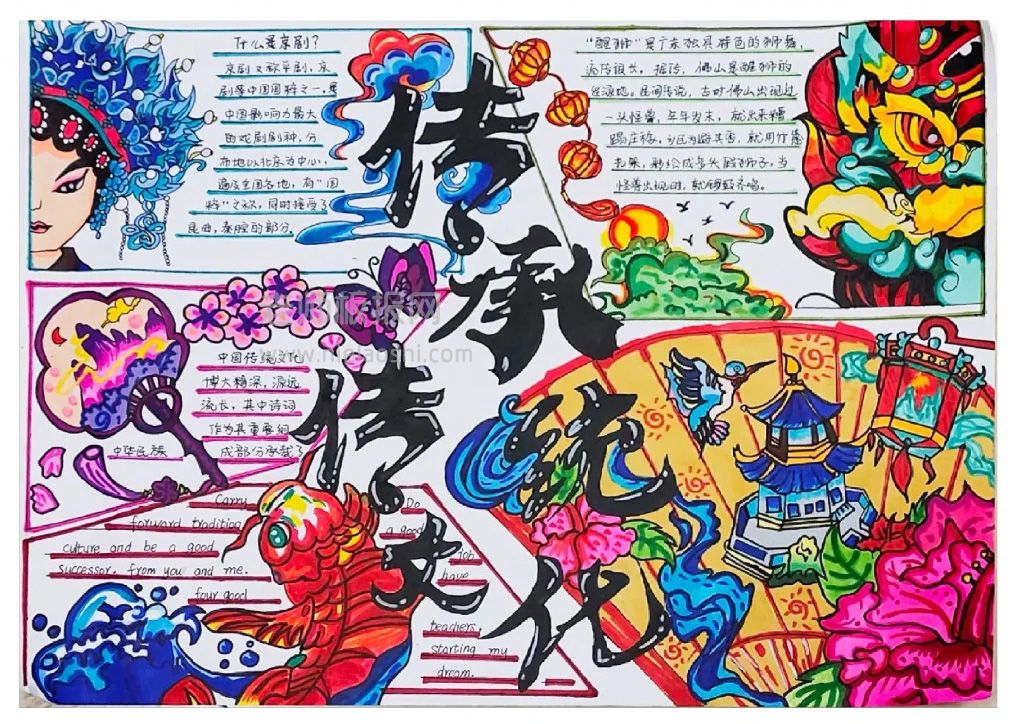 传承
传统
文化
什么是京剧?
京剧又称平剧,京
剧等中国国粹之一,是
中国影响力最大
的戏剧剧种,分
布地以北京为中心,
遍及全国各地,有"国
粹"之称,同时接受了
昆曲,秦腔的部分,
"醒狮"是广东独具特色的狮舞,
流传很长。据传,佛山是醒狮的
发源地。民间传说,古时佛山出现过
一头怪兽,年年岁末,就出来糟
蹋庄稼,乡民为
扎架,彩绘成多头
狮子,当
怪兽出现时,就锣鼓齐鸣。
中国传统文化
博大精深,源远
流长,其中诗词
作为其重要组
成部分承载了
中华民族
Carry
forward tradition
culture and be a good
successor, from you and me.
four good
Do
a good
job
have
teachers,
starting my
dream.
www.
aoshi.com
板报网